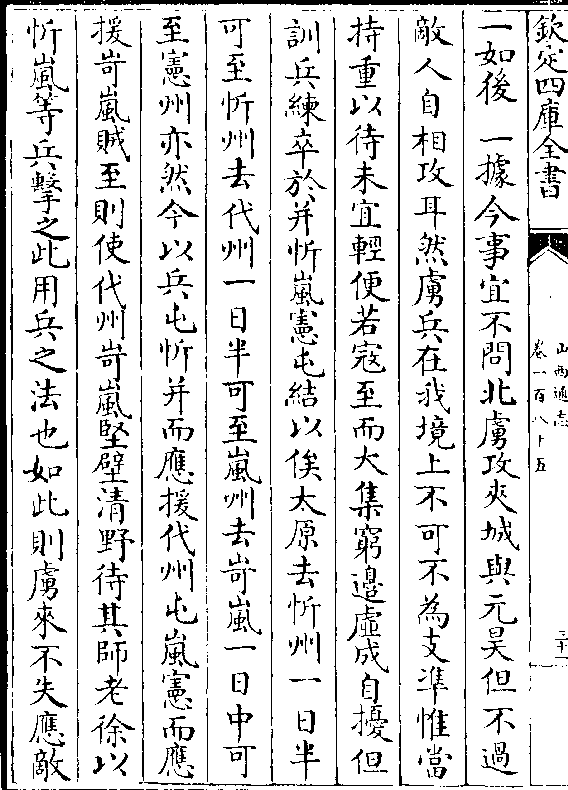 欽定四庫全書
山西通志
卷一百八十五
三十一
一如後一據今事宜不問北虜攻夾城與元昊但不過
敵人自相攻耳然虜兵在我境上不可不為支準惟當
持重以待未宜輕便若寇至而大集窮邊虛成自擾但
訓兵練卒於并忻嵐憲屯結以俟太原去忻州一日半
可至忻州去代州一日半可至嵐州去岢嵐一日中可
至憲州亦然今以兵屯忻并而應援代州屯嵐憲而應
援岢嵐賊至則使代州岢嵐堅壁清野待其師老徐以
忻嵐等兵擊之此用兵之法也如此則虜來不失應敵